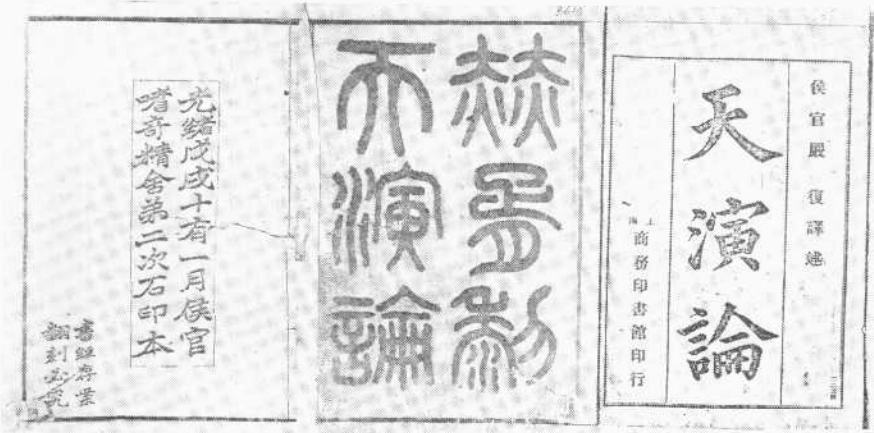 侯官嚴 復譯述
天演論
上海
商務印書館印行
赫胥黎
天演論
光緒戊戌十有一月侯官
嗜奇精舍第二次石印本
書經存案
翻刻必究